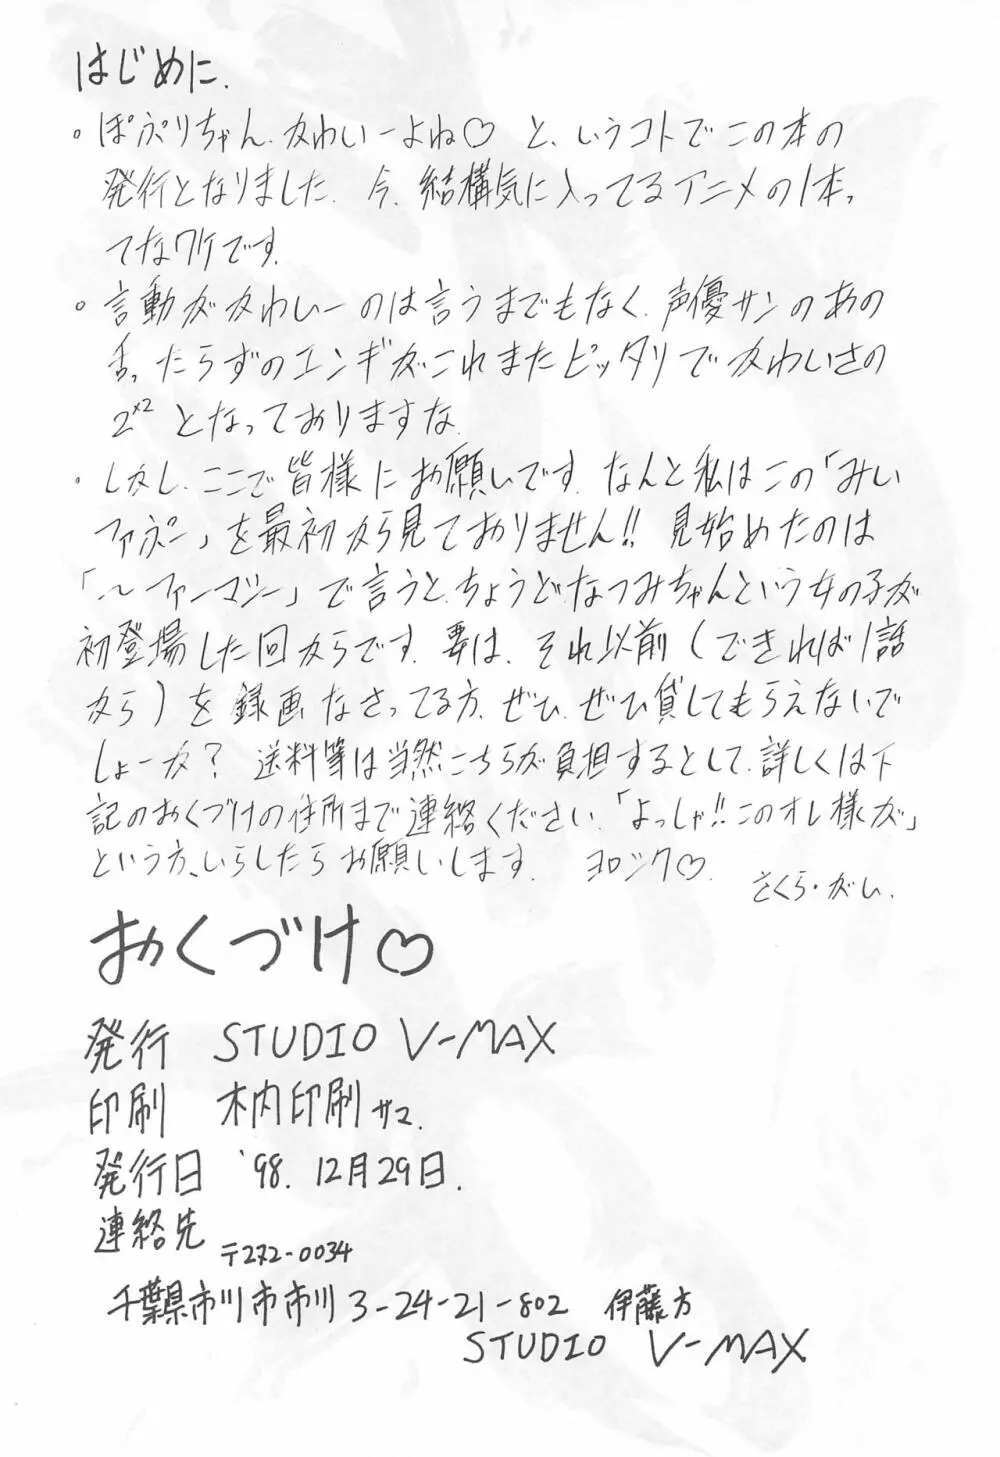 はじめに.
。ぽぷりちゃん.かわいーよね♡ と、いうコトでこの本の
発行となりました. 今、結構気に入ってるアニメの1本、
てなワケです.
。言動がかわいーのは言うまでもなく、声優サンのあの
舌ったらずのエンギがこれまたピッタリでかわいさの
2ˣ² となっておりますな.
・しかし、ここで皆様にお願いです. なんと私はこの「みい
ファぷー」を最初から見ておりません!! 見始めたのは
「〜ファーマシー」で言うと、ちょうどなつみちゃんという女の子が
初登場した回からです. 要は、それ以前(できれば1話
から)を録画なさってる方、ぜひ、ぜひ貸してもらえないで
しょーか? 送料等は当然こちらが負担するとして、詳しくは下
記のおくづけの住所まで連絡ください.「よっしゃ!!このオレ様が」
という方、いらしたらお願いします. ヨロシク♡.
さくら・がい.
おくづけ♡
発行 STUDIO V-MAX
印刷 木内印刷サマ.
発行日 '98. 12月29日.
連絡先 〒272-0034
千葉県市川市市川3-24-21-802 伊藤方
STUDIO V-MAX